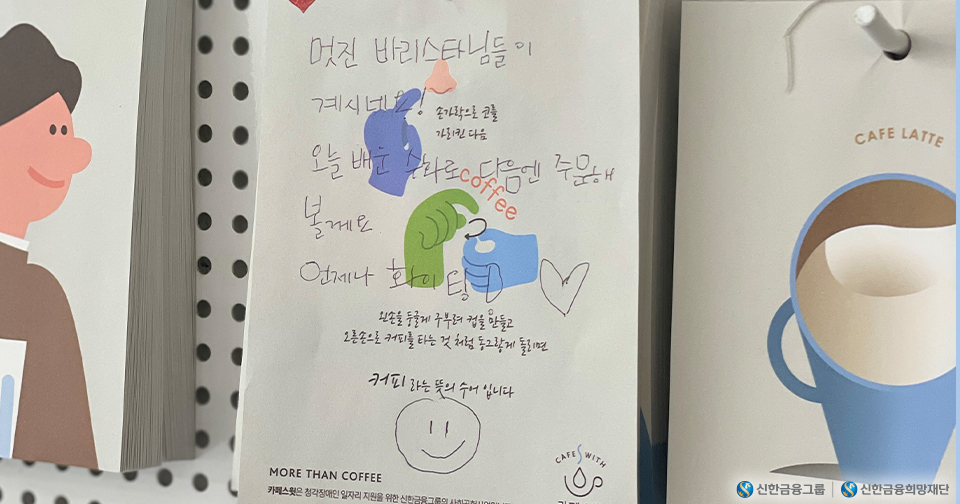 멋진 바리스타님들이
계시네요!
손가락으로 코를
가리킨 다음
오늘 배운 수화로 다음엔 주문해
coffee
볼게요
언제나 화이팅!
왼손을 둥글게 구부려 컵을 만들고
오른손으로 커피를 타는 것처럼 동그랗게 돌리면
커피 라는 뜻의 수어 입니다
MORE THAN COFFEE
CAFE S WITH
CAFE LATTE
신한금융그룹 | 신한금융희망재단